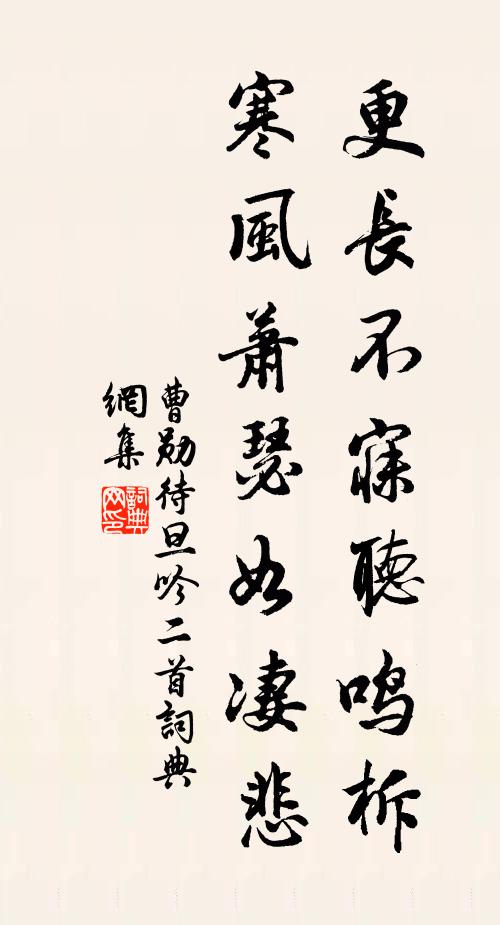 更長不寐聽鳴柝
寒風蕭瑟如淒悲
曹勛待旦吟二首詞典
網集
詞典
网印